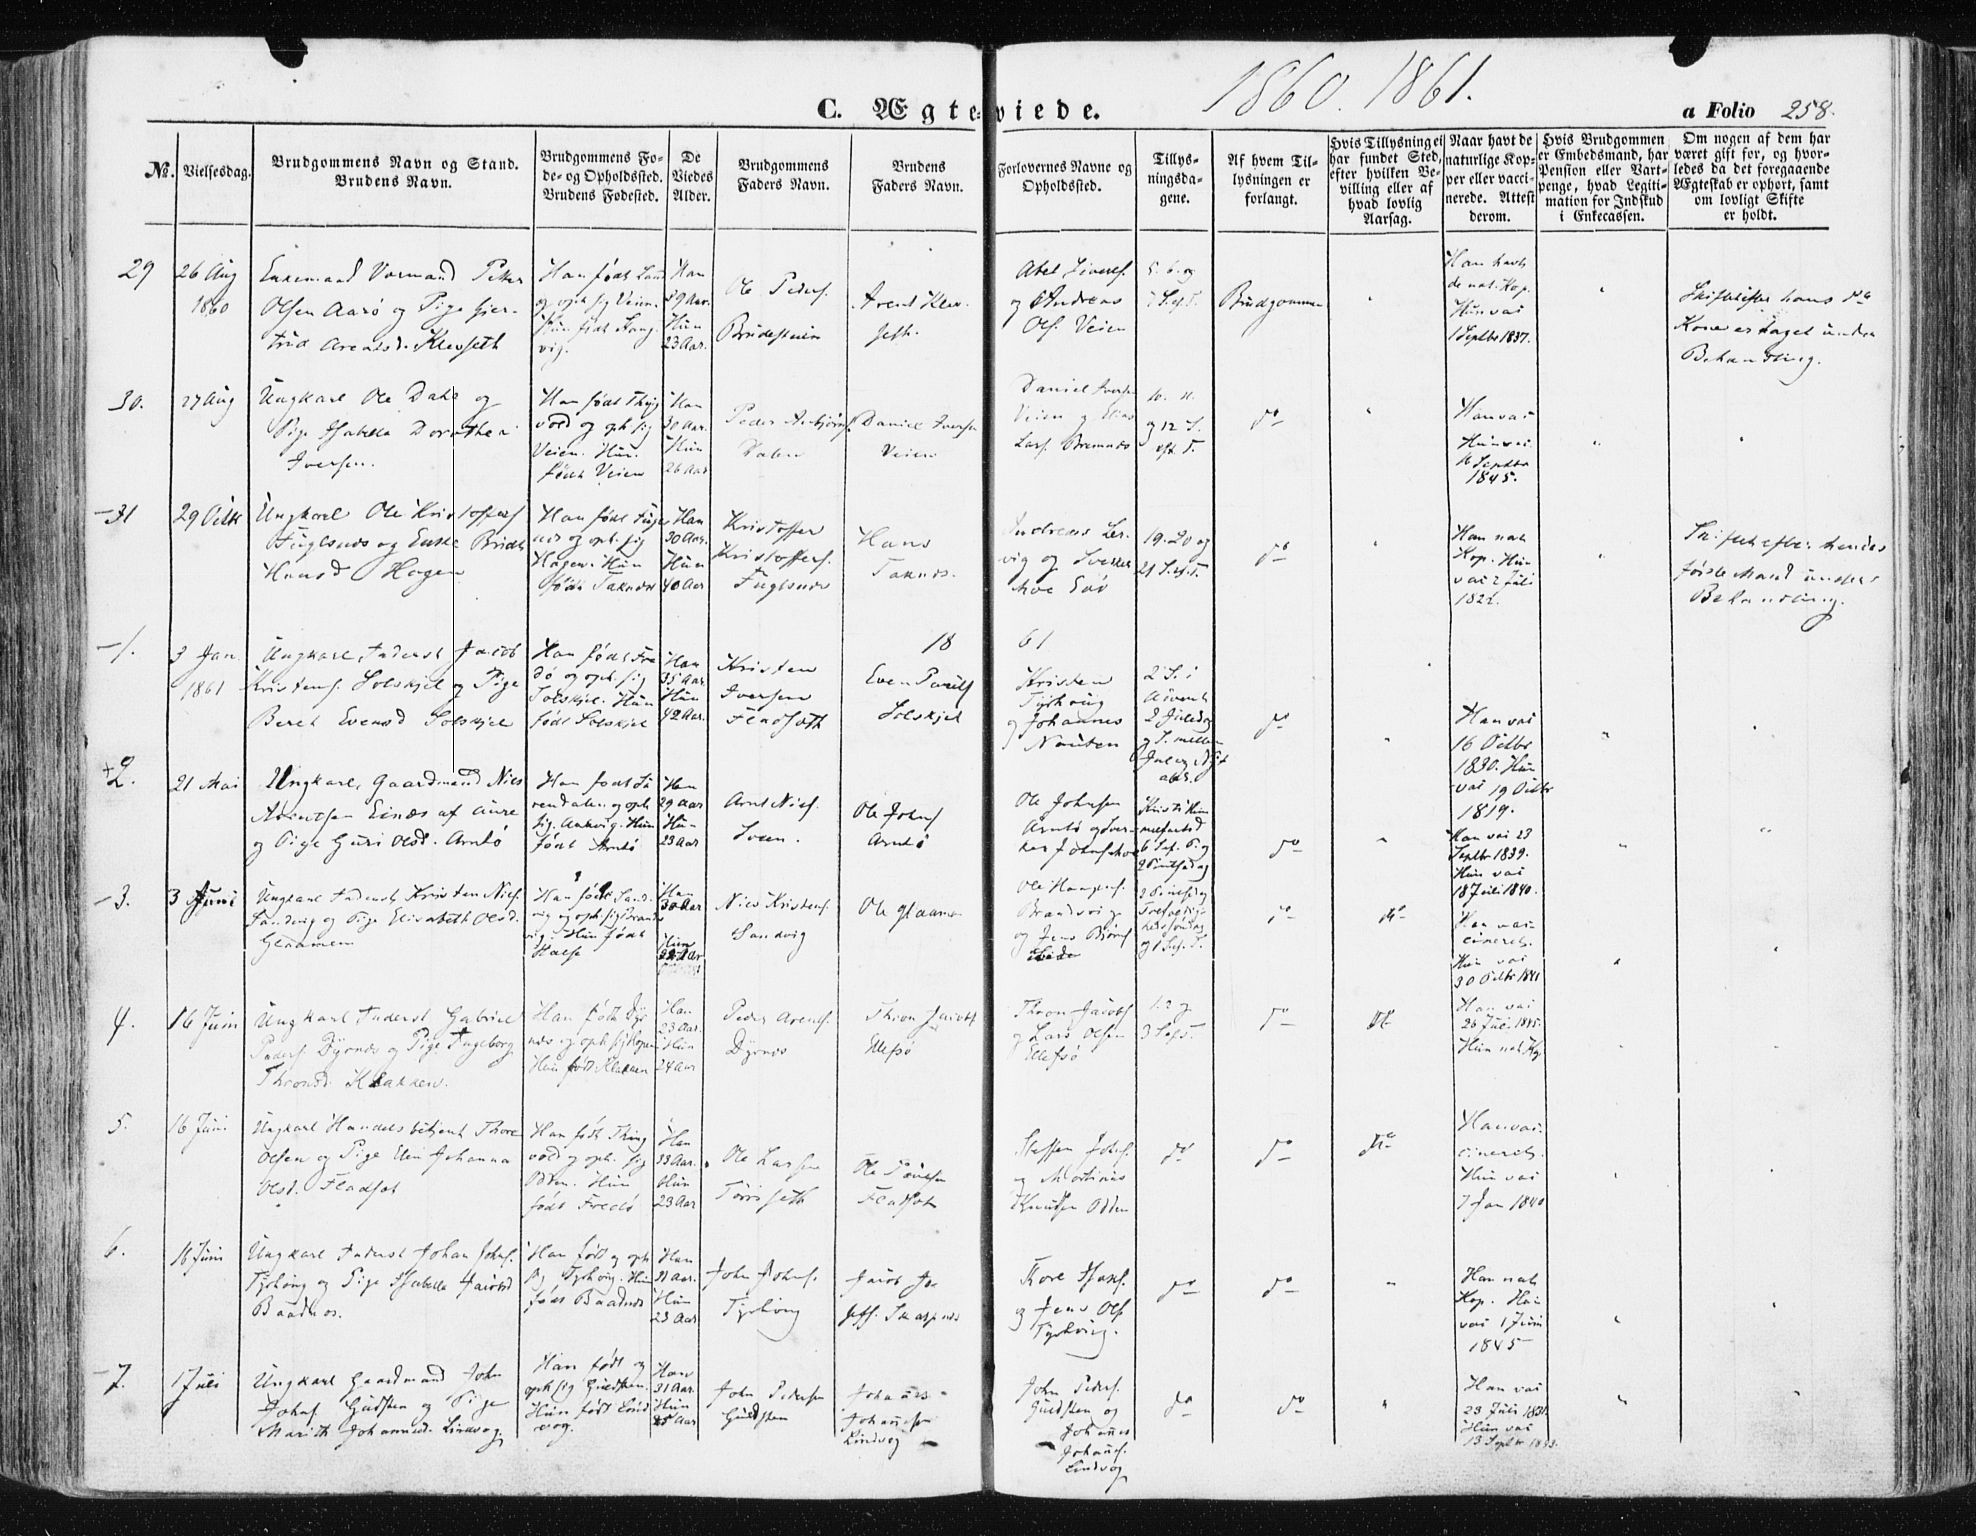 1860. 1861.
C. Ægteviede.
a Folio 258.
No.
Vielsesdag.
Brudgommens Navn og Stand.
Brudens Navn.
Brudgommens Fø-
de- og Opholdssted.
Brudens Fødested.
De
Viedes
Alder.
Brudgommens
Faders Navn.
Brudens
Faders Navn.
Forlovernes Navne og
Opholdssted.
Tillys-
ningsda-
gene.
Af hvem Til-
lysningen er
forlangt.
Hvis Tillysning ei
har fundet Sted,
efter hvilken Be-
villing eller af
hvad lovlig
Aarsag.
Naar havt de
naturlige Kop-
per eller vacci-
nerede. Attest
derom.
Hvis Brudgommen
er Embedsmand, har
Pension eller Vart-
penge, hvad Legiti-
mation for Indskud
i Enkecassen.
Om nogen af dem har
været gift før, og hvor-
ledes da det foregaaende
Ægteskab er ophørt, samt
om lovligt Skifte
er holdt.
29
26 Aug
1860
Enkemand Petter
Olsen Aarø og Pige Gjer-
trud Arentsd. Klevseth
Han født
og oph sig Veien.
Hun født Stang-
vig.
Han
59 Aar.
Hun
23 Aar.
Ole Peders.
Brudesteien
Arent Klev-
seth.
og Andreas
Ols. Veien
5. 6. og
7 S. ef. T.
Brudgommen
Han havt
de nat. Kop.
Hun vac
1 Septbr 1837.
Skifte efter hans
Kone er taget under
Behandling.
30.
27 Aug
Ungkarl Ole Dahl og
Pige Isabella Dorothea
Iversen.
Han født Thing
vold og oph sig
Veien. Hun
født Veien
Han
30 Aar.
Hun
26 Aar
Peder
Dalen
Daniel Iversen
Veien
Daniel Iversen
Veien og Elias
Lars. Bremnes
10. 11.
og 12 S.
eft. T.
do
Han vac
Hun vac.
Septbr
1845.
31
29 Octbr
Ungkarl Ole Kristoffers
Fuglsnes og Enke
Hansd Hagen
Han født Fugls
nes og oph. sig
Hagen. Hun
født Taknes
Han
30 Aar.
Hun
40 Aar
Kristoffer
Kristoffers.
Fuglsnes
Hans
Taknes.
Andreas Ler-
vig og
19. 20 og
21 S. ef. T.
do
Han nat.
Kop. Hun
vac 2 Juli
1822.
Skifte efter hendes
første Mand under
Behandling.
1861
1.
3 Jan.
1861
Ungkarl, Inderst Jacob
Kristens. Solskjel og Pige
Beret Evensd Solskjel
Han født Fre
dø og oph. sig
Solskjel. Hun
født Solskjel
Han
35 Aar.
Hun
42 Aar.
Kristen
Iversen
Fladseth
Even Pouels
Solskjel
Kristen
Tyshaug
og Johannes
Nausten
2 S. i
Advent
2 Juledag
og S. mellem
Jul og Nyt
aar.
do
Han vac
16 Octbr
1830. Hun
vac 19 Octbr
1819.
2.
21 Mai
Ungkarl, Gaardmand Niels
Arentsen Eines af Aure
og Pige Guri Olsd. Arntø
Han født Su
rendalen og oph
sig. Aukvig. Hun
født Arntø
Han
29 Aar
Hun
23 Aar
Arnt Niels.
Sveen.
Ole Johns
Arntø
Ole Johnsen
Arntø og
Kristi Him
melfartsd
6 S. ef. P. og
2 Pintsedag
do
Han vac 23
Septbr 1839.
Hun vac
18 Juli 1840.
3.
3 Juni
Ungkarl Inderst Kristen Niels.
Sandvig og Pige Elisabeth Olsd.
Glaamen
Han født Sand-
vig og oph sig Brands
vig. Hun født
Halse
Han
30 Aar
Hun
22 Aar
Niels Kristens.
Sandvig
Ole Glaamen
Ole
Brandsvig
og Jens Bjørns
2 Pintsedag
Trefoldig-
hedssøndag
og 1 S. ef. T.
do
Han vac.
cineret.
Hun vac
30 Octbr 1841
4.
16 Juni
Ungkarl Inderst Gabriel
Peders. Dyrnes og Pige Ingeborg
Thronsd. Klakken.
Han født Dyr
nes og oph sig Kopen
Hun født Klakken
Han
23 Aar.
Hun
24 Aar
Peder Arents.
Dyrnes
Thron Jacobs
Ellefsø
Thron Jacobs
og Lars Olsen
Ellefsø
1. 2 og
3 S. ef. T.
do
Han vac
26 Juli 1845.
Hun nat. Kop
5.
16 Juni
Ungkarl Handelsbetjent Thore
Olsen og Pige Elen Johanna
Olsd. Fladset
Han født Thing
vold og oph. sig
Odden. Hun
født Fredø
Han
33 Aar.
Hun
23 Aar
Ole Larsen
Torriseth
Ole Pouelsen
Fladset
Steffen Johs.
og Mortinus
Knudsen Odden
do
do
Han vac.
cineret.
Hun vac
7 Jan 1840
6.
16 Juni
Ungkarl Inderst Johan Johns.
Tyshoug og Pige Isabella Jacobsd
Baadnes.
Han født og oph
sig Tyshoug. Hun
født Baadnes
Han
31 Aar.
Hun
23 Aar
John Johns.
Tyshoug
Jacob Jo-
sefs.
Thore Isaks.
og Jens Ols
Tyshoug.
do
do
Han nat.
Kop. Hun
vac 1 Juni
1845
7.
1 Juli
Ungkarl Gaardmand John
Johns. Guldsten og Pige
Marith Johannesd. Lindvog
Han født og
oph sig Guldsten.
Hun født Lind
vog.
Han
31 Aar.
Hun
25 Aar
John Pedersen
Guldsten
Johannes
Johannesen
Lindvog
John Peders.
Guldsten og
Johannes
Johannes.
Lindvog
do
do
Han vac
23 Juli 1831.
Hun vac
13 Septbr